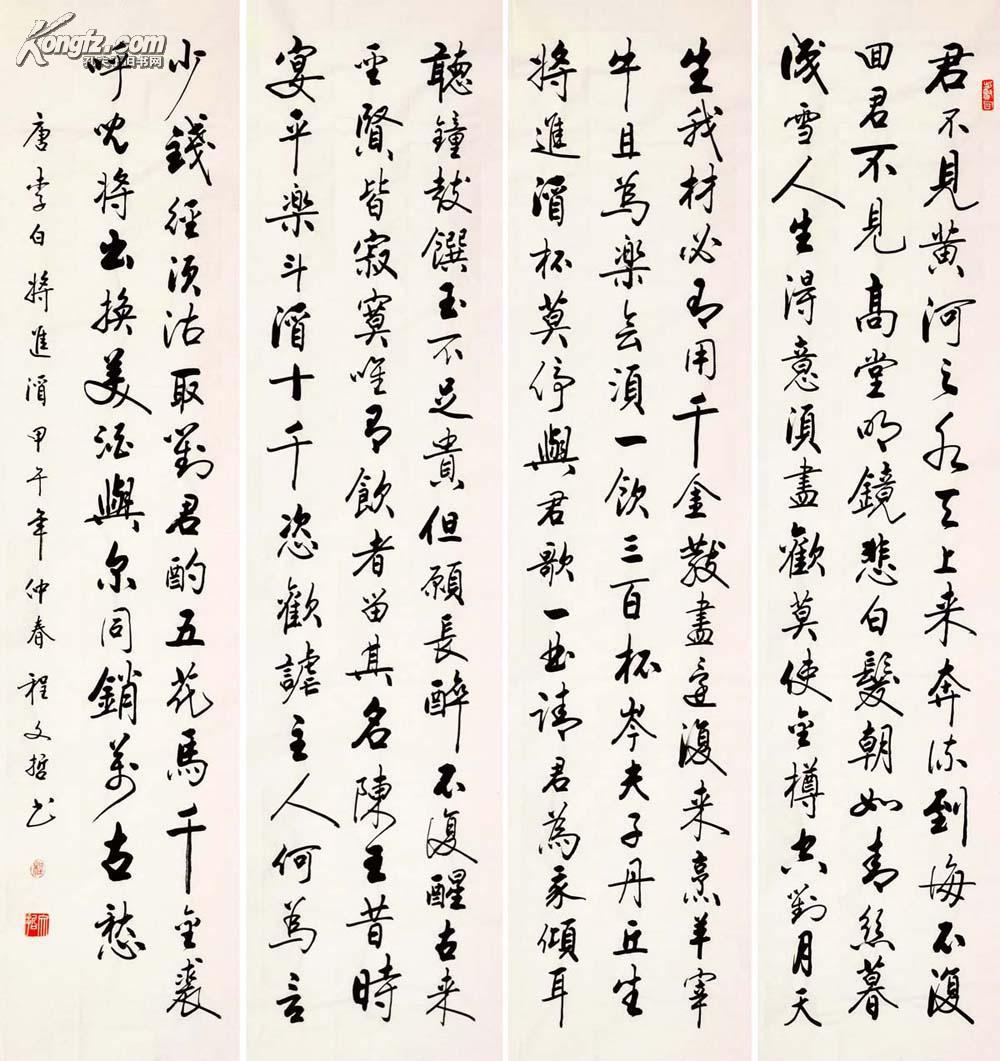 君不見黄河之水天上来奔流到海不復
回君不見高堂明鏡悲白髮朝如青絲暮
成雪人生得意須盡歡莫使金樽空對月天
生我材必有用千金散盡還復来烹羊宰
牛且為樂会須一飲三百杯岑夫子丹丘生
將進酒杯莫停與君歌一曲請君為我傾耳
聽鐘鼓饌玉不足貴但願長醉不復醒古来
聖賢皆寂寞唯有飲者留其名陳王昔時
宴平樂斗酒十千恣歡謔主人何為言
少錢經須沽取對君酌五花馬千金裘
呼兒將出換美酒與尔同銷萬古愁
唐李白將進酒甲午年仲春程文哲书
Kongfz.com
孔夫子旧书网